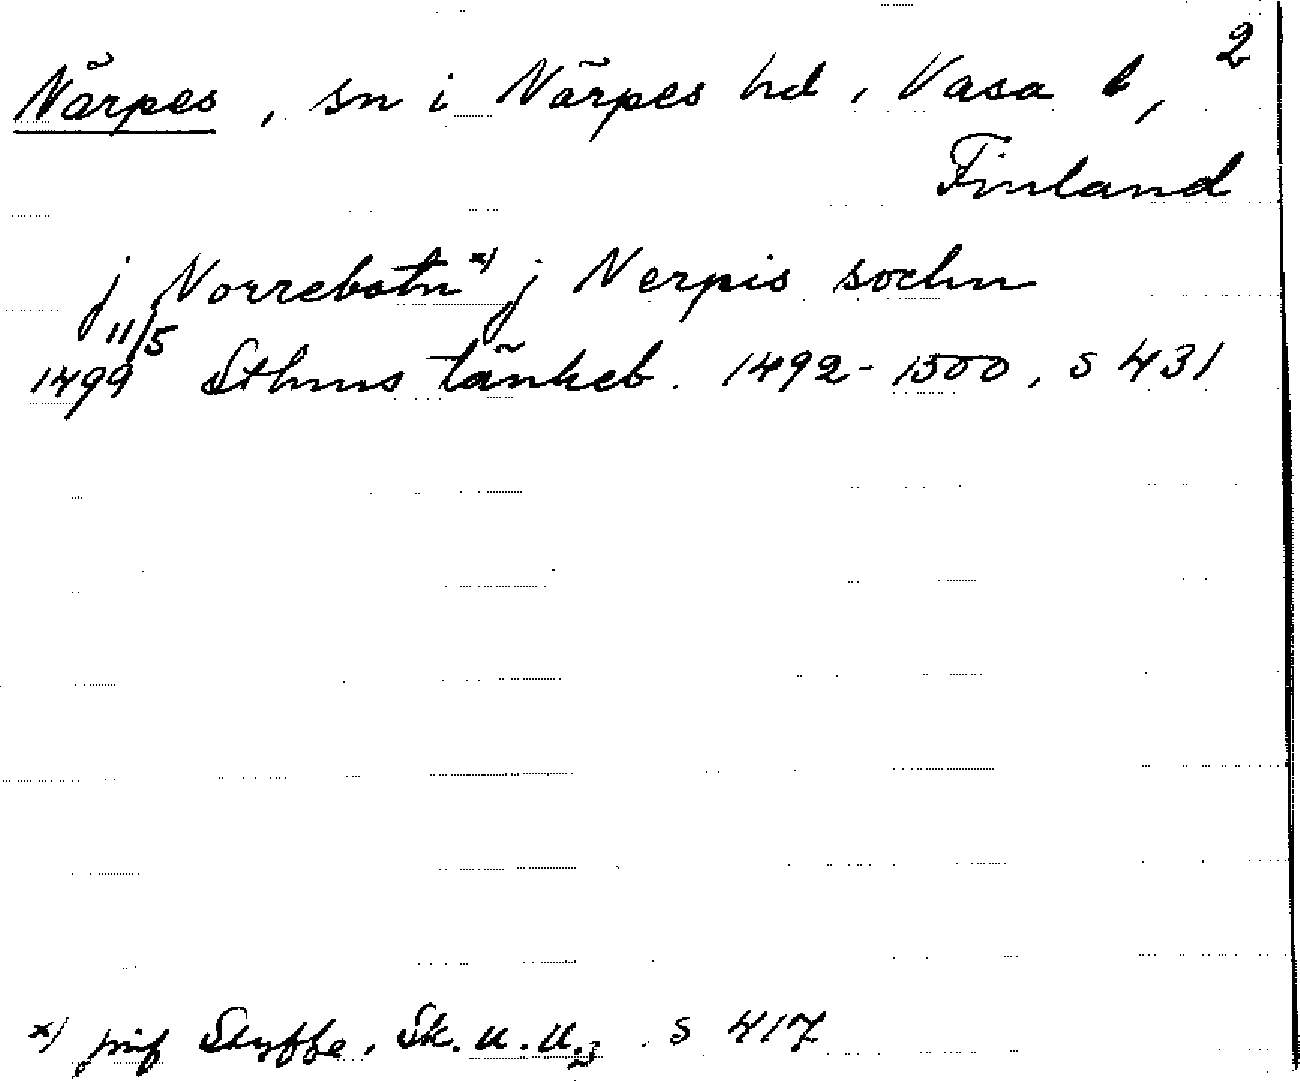 2
Närpes, sn i Närpes hd, Vasa l,
Finland
j Norrebotn x) j Nerpis sochn
11/5
1499 Sthms tänkeb. 1492-1500, s 431
x) jmf Styffe, Sk. u. U.3 . s 417